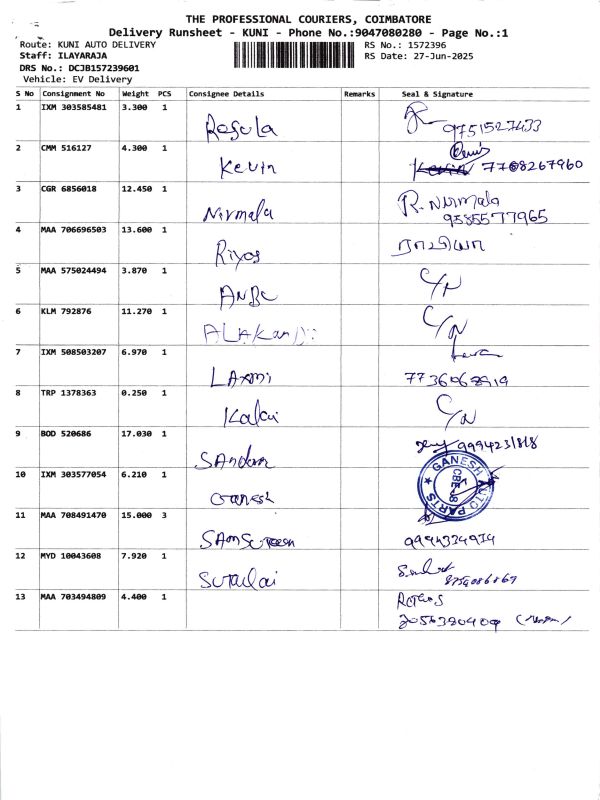 THE PROFESSIONAL COURIERS, COIMBATORE
Delivery Runsheet - KUNI - Phone No.:9047080280 - Page No.:1
Route: KUNI AUTO DELIVERY RS No.: 1572396
Staff: ILAYARAJA RS Date: 27-Jun-2025
DRS No.: DCJB157239601
Vehicle: EV Delivery
S No Consignment No Weight PCS Consignee Details Remarks Seal & Signature
1 IXM 303585481 3.300 1
Regula 9751527433
2 CMM 516127 4.300 1
Kevin 7708267960
3 CGR 6856018 12.450 1 R. Nirmala
Nirmala 9585577965
4 MAA 706696503 13.600 1
Riyas
5 MAA 575024494 3.870 1
C/N
6 KLM 792876 11.270 1
C/N
7 IXM 508503207 6.970 1
Laxmi
8 TRP 1378363 0.250 1
Kalai C/N
9 BOD 520686 17.030 1
9994231818
10 IXM 303577054 6.210 1 GANESH AUTO PARTS
Ganesh
11 MAA 708491470 15.000 3
12 MYD 10043608 7.920 1
13 MAA 703494809 4.400 1